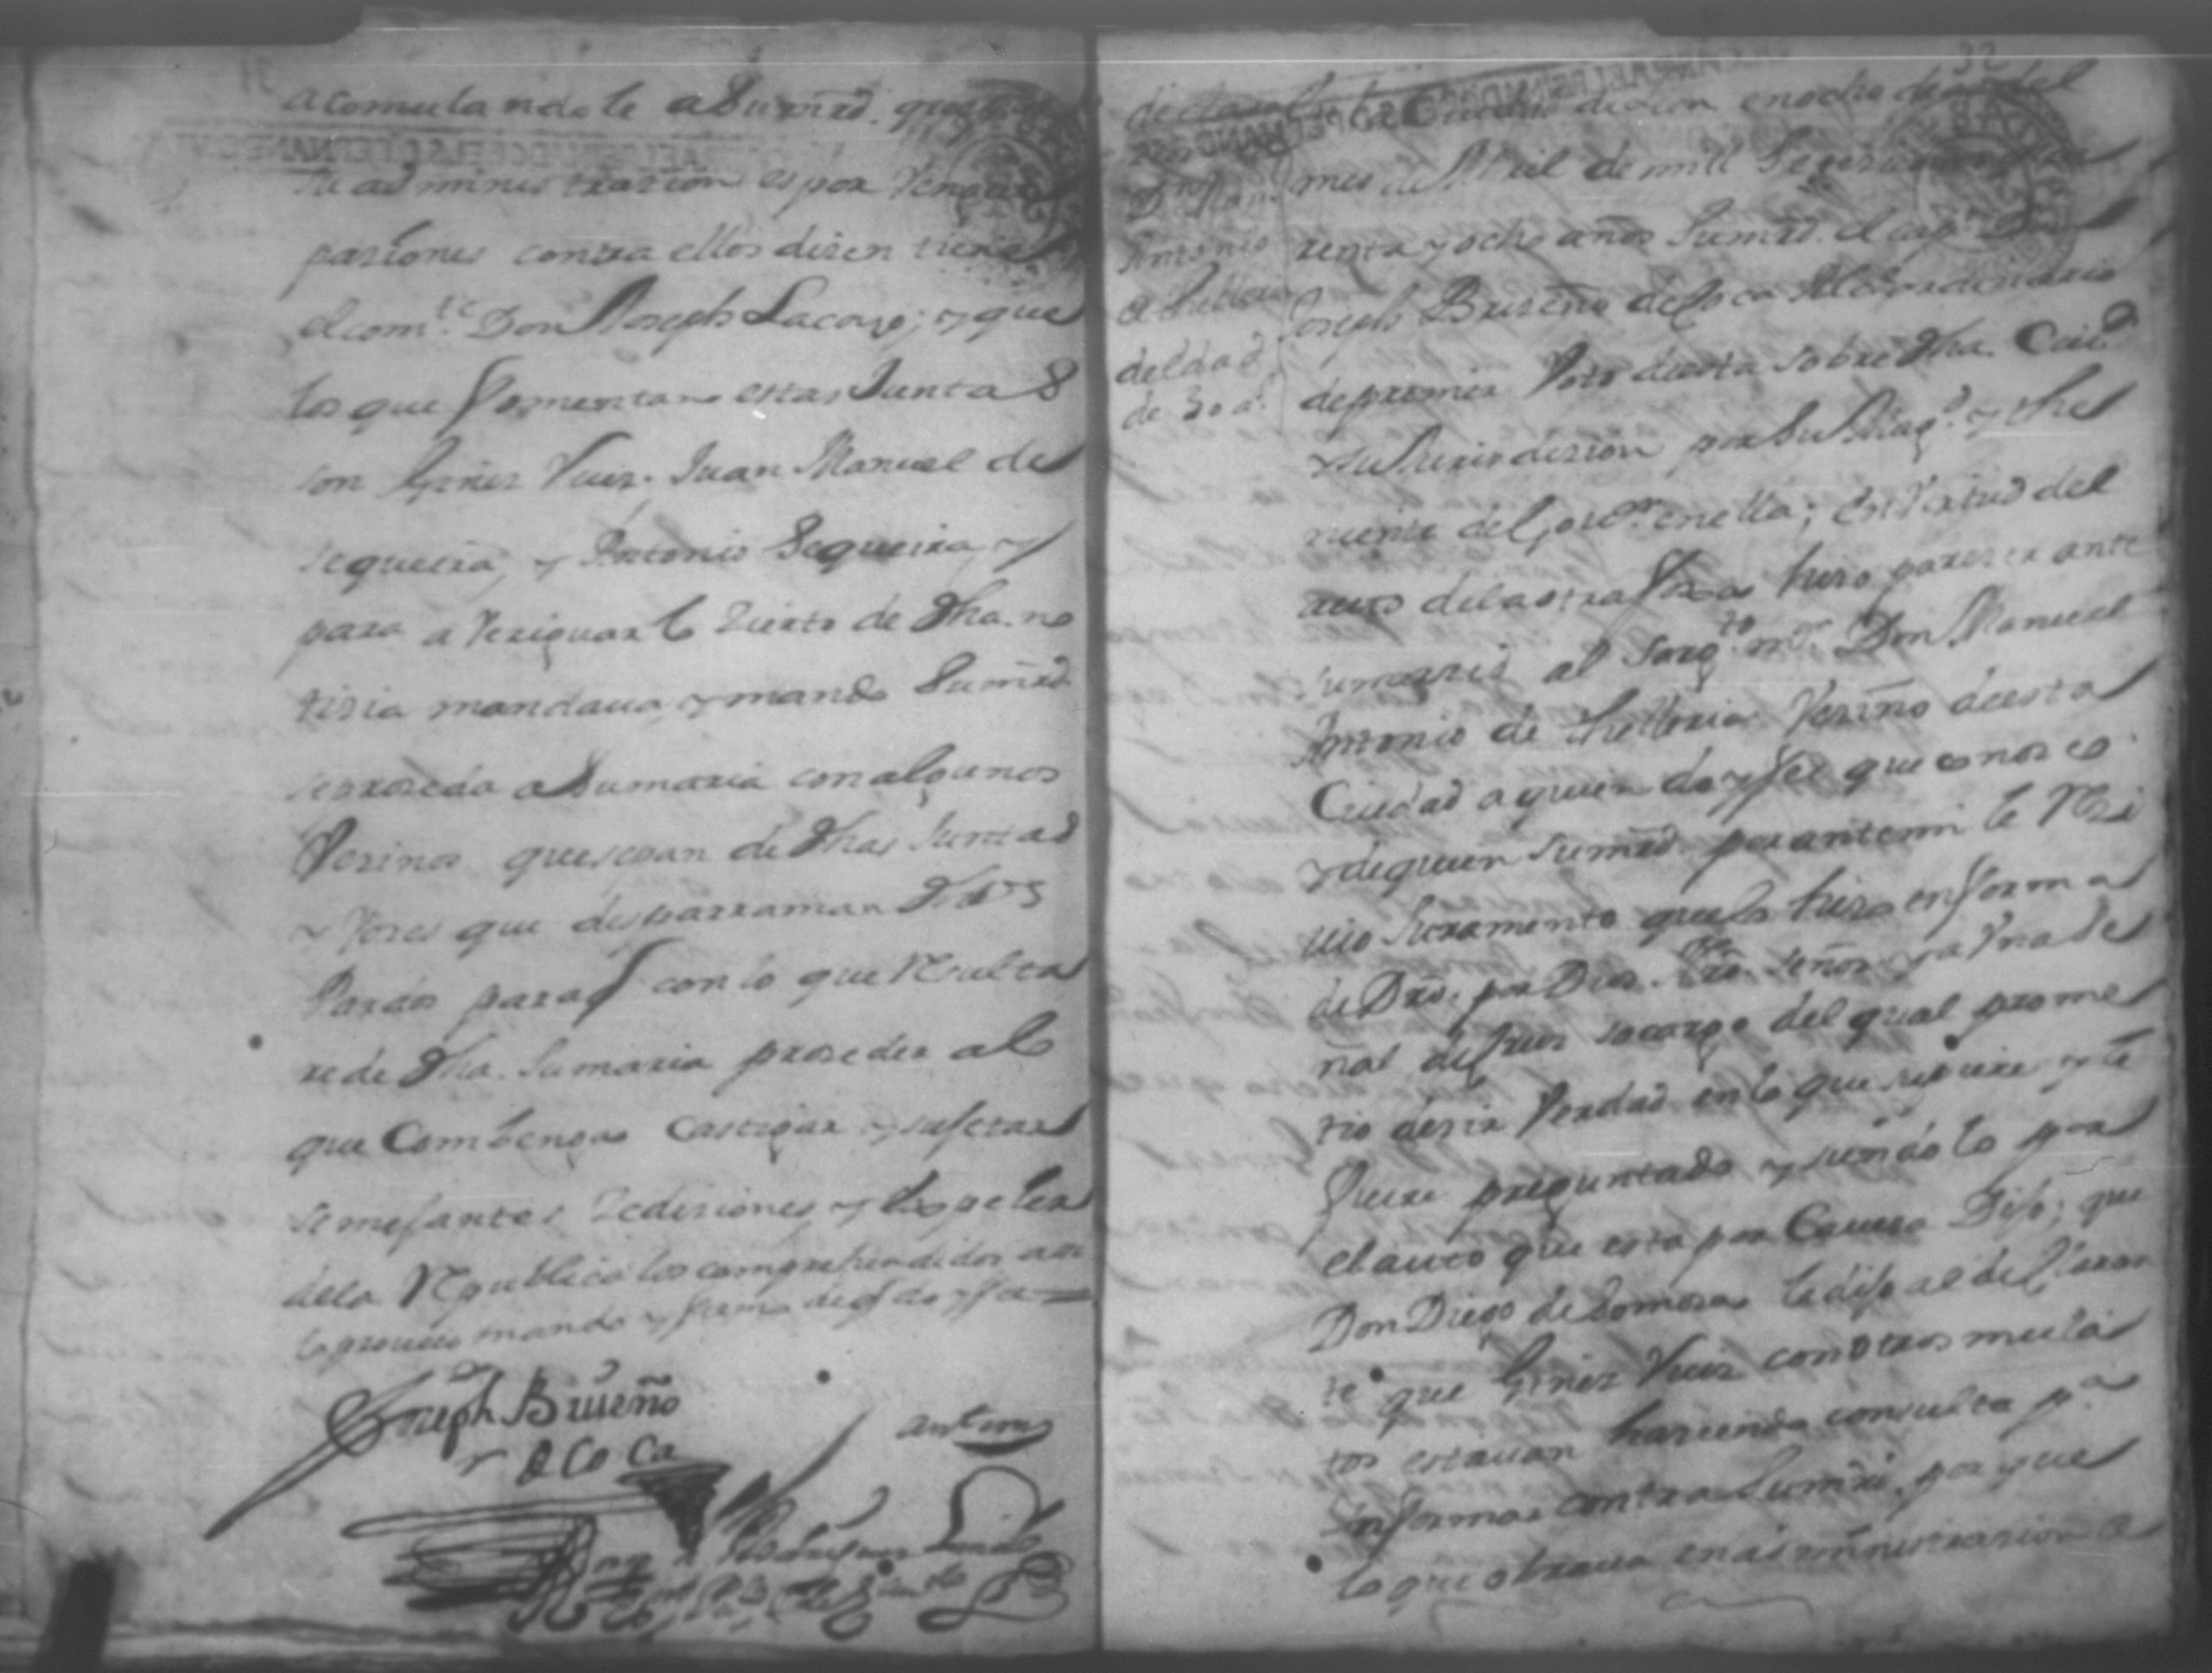 acomulandole a Sumrd. que
su administrazion es por Vengar
paziones contra ellos dizen tiene
el comte. Don Joseph Lacayo; y que
los que fomentan estas Juntas
son Ginez Vuiz. Juan Manuel de
sequeira, y Antonio Sequeira, y
para a Veriguar lo Zierto de dha. no
tizia mandaua, y mando Sumrd.
se prozeda a Sumaria con algunos
Vezinos que sepan de dhas Juntas
y Vozes que desparraman dhos
Pardos para con lo que Resulta
re de dha. Sumaria prozeder a lo
que Combenga Castigar y sujetar
semejantes Zediziones y Expeler
de la Republica los comprehendidos asi
lo proueio mando y firmo de q doy fe
Joseph Briseño
y de Coca
antemi
declaraz. la Ciudad de Leon en ocho dias del
mes de Abril de mill Setezientos
Dn. Man.
Antonio
de
de edad
de 30 a.
renta y ocho años Sumrd. el capn. Dn
Joseph Briseño de Coca Alcalde ordinario
de primer Voto de esta sobre dha. Ciud.
y su Jurisdizion por Su Magd. y the
niente de Gouor. en ella; En Virtud del
auto de la otra foxa hizo parezer ante
sumerzed al Sargto. mr. Don Manuel
Antonio de Vezino de esta
Ciudad a quien doy fee que conosco
y de quien Sumrd. por ante mi le Rezi
uio Juramento que lo hizo en forma
de Dro. por Dios nro. señor y a Vna Se
ñal de Cruz so cargo del qual prome
tio dezir Verdad en lo que supiere y le
fuere preguntado y siendolo por
el auto que esta por Caueza Dijo; que
Don Diego de Somoza le dijo al declaran
te que Ginez Vuiz con otros mula
tos estauan haziendo consulta pa.
informar contra Sumrd. por que
lo que obraua en administrazion de